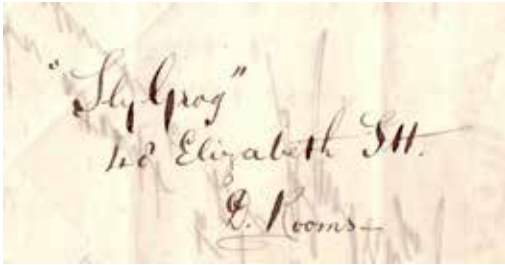 "Sly Grog"
48 Elizabeth Stt.
D. Rooms